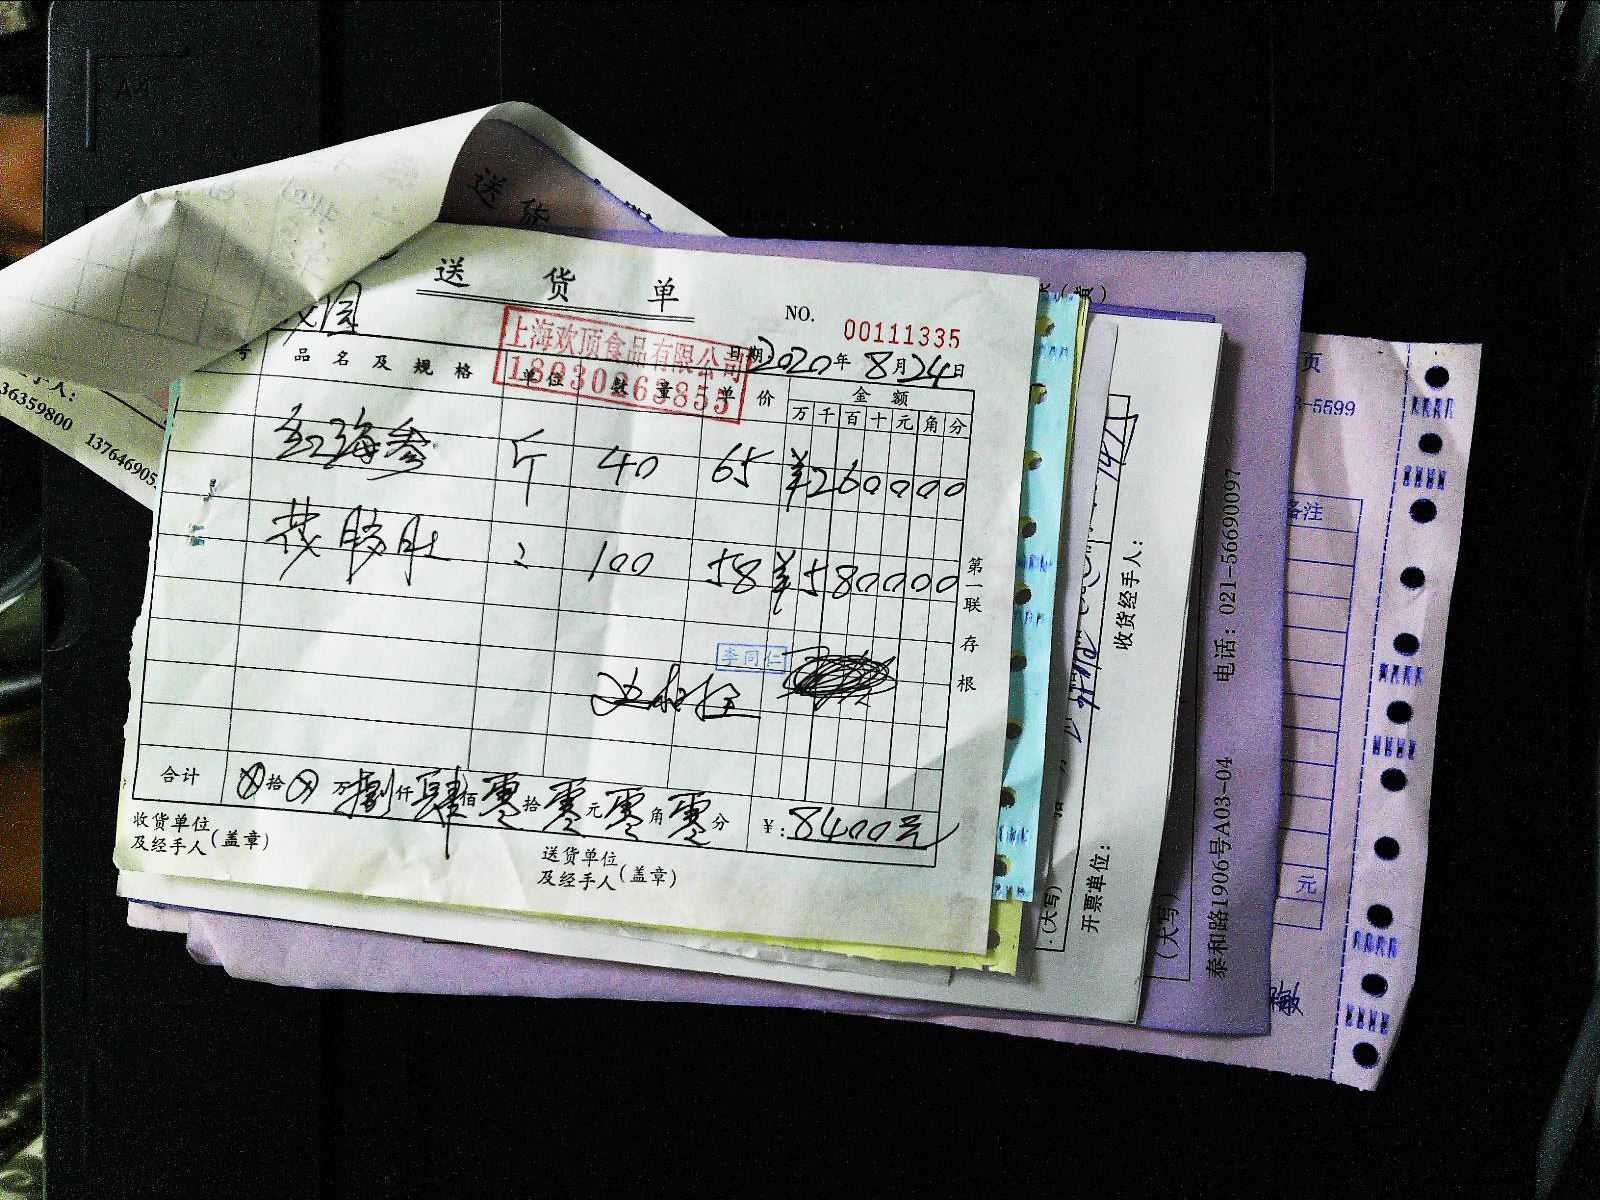 送货
送货单
NO. 00111335
上海欢顶食品有限公司
18930263855
日期 2020年8月24日
号 品名及规格 单位 数量 单价 金额
万 千 百 十 元 角 分
红海参 斤 40 65 ¥260000
膀肚 〃 100 58 ¥580000
李同仁
合计 ⊗拾⊗万捌仟肆佰零拾零元零角零分 ¥:8400元
收货单位
及经手人(盖章)
送货单位
及经手人(盖章)
第一联 存根
36359800 137646905
页
-5599
备注
元
收货经手人:
开票单位:
(大写)
(大写)
泰和路1906号A03-04 电话:021-56690097